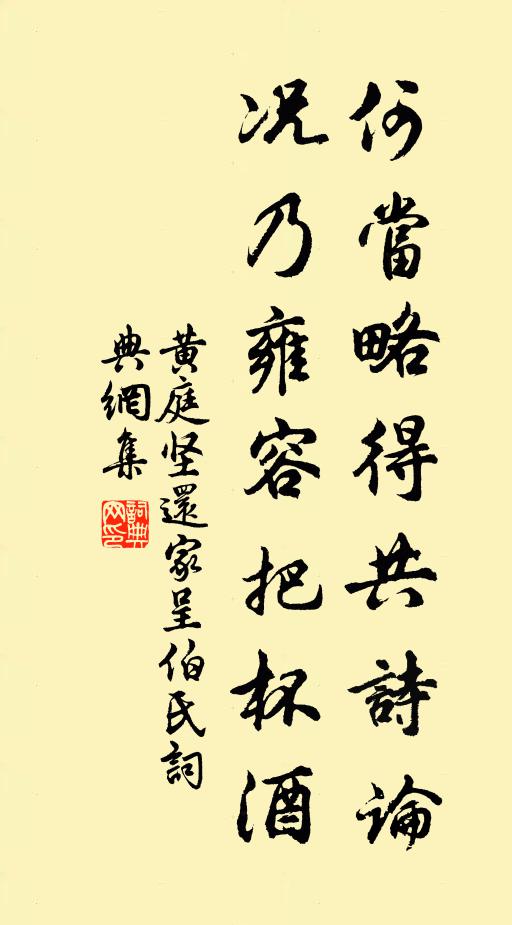 何當略得共詩論
况乃雍容把杯酒
黄庭坚還家呈伯氏詞
典網集
詞典
网印